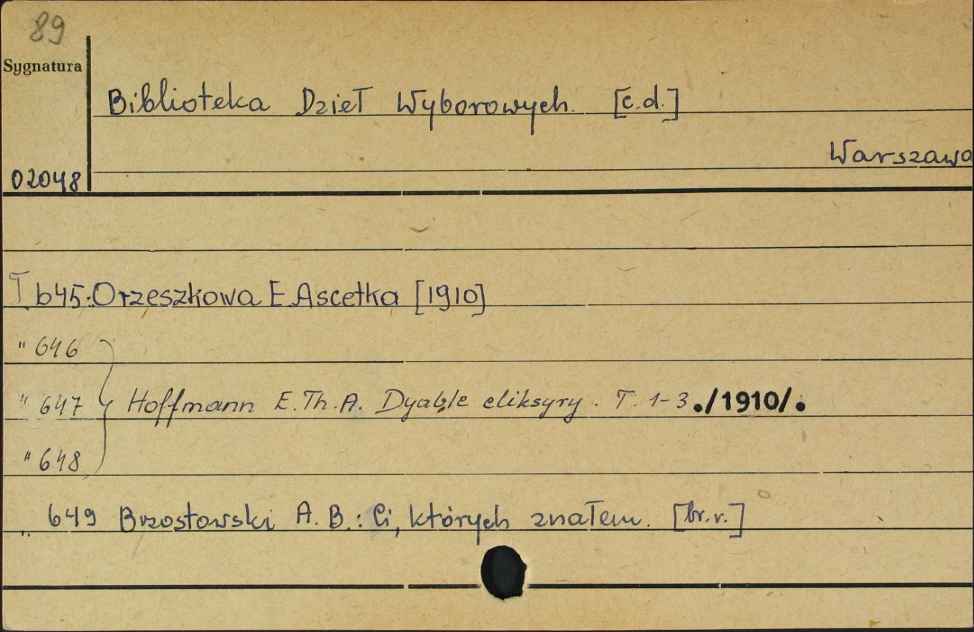 89
Sygnatura
Biblioteka Dzieł Wyborowych. [c.d.]
Warszawa
02048
T 645. Orzeszkowa E Ascetka [1910]
" 646
" 647 Hoffmann E. Th. A. Dyable eliksyry. T. 1-3./1910/.
" 648
" 649 Brzostowski A. B.: Ci, których znałem. [br.r.]